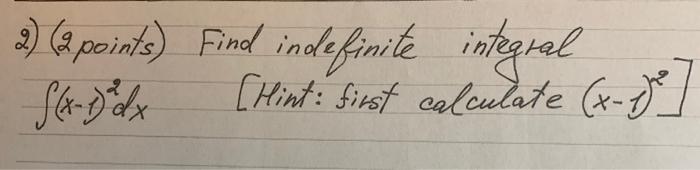 2) (2 points) Find indefinite integral
∫(x-1)²dx [Hint: first calculate (x-1)²]